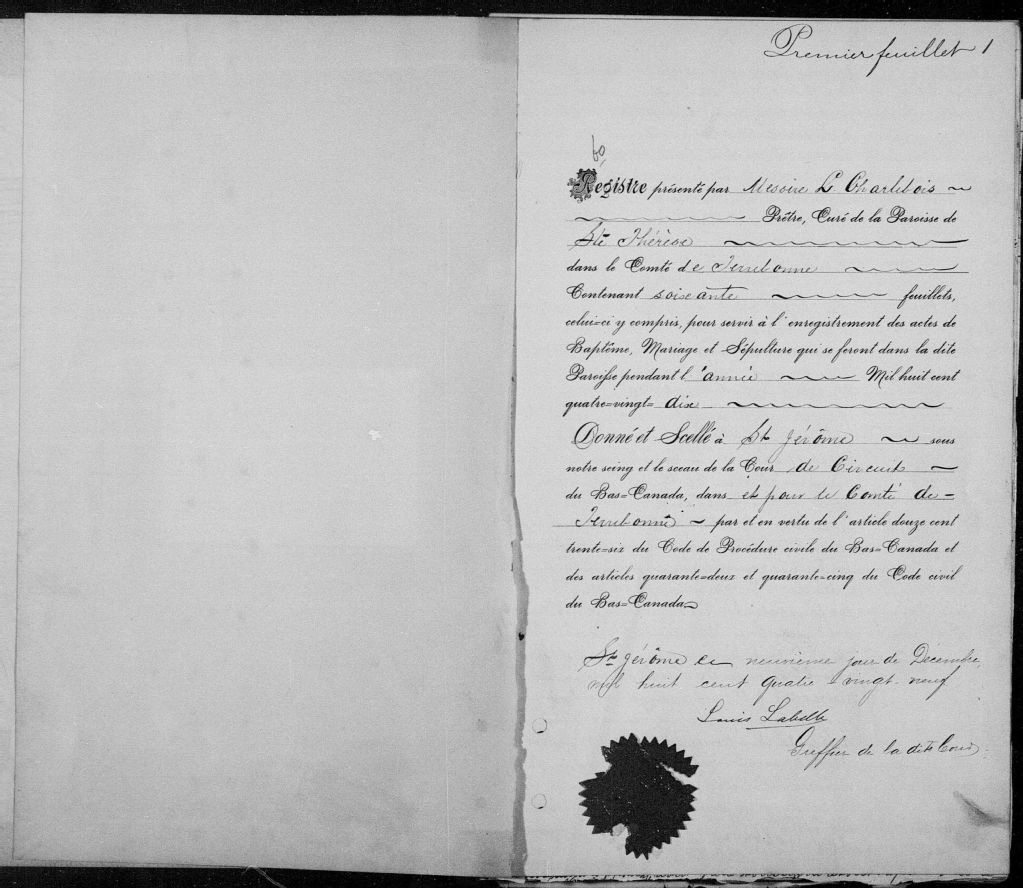 Premier feuillet 1
60
Registre présenté par Messire L Charlebois
Prêtre, Curé de la Paroisse de
Ste Thérèse
dans le Comté de Terrebonne
Contenant soixante feuillets,
celui=ci y compris, pour servir à l'enregistrement des actes de
Baptême, Mariage et Sépulture qui se feront dans la dite
Paroisse pendant l'année Mil huit cent
quatre=vingt= dix
Donné et Scellé à St Jérôme sous
notre seing et le sceau de la Cour de Circuit
du Bas=Canada, dans et pour le Comté de
Terrebonne par et en vertu de l'article douze cent
trente=six du Code de Procédure civile du Bas=Canada et
des articles quarante=deux et quarante=cinq du Code civil
du Bas=Canada
St Jérôme ce neuvième jour de Décembre,
mil huit cent quatre-vingt-neuf
Louis Labelle
Greffier de la dite Cour